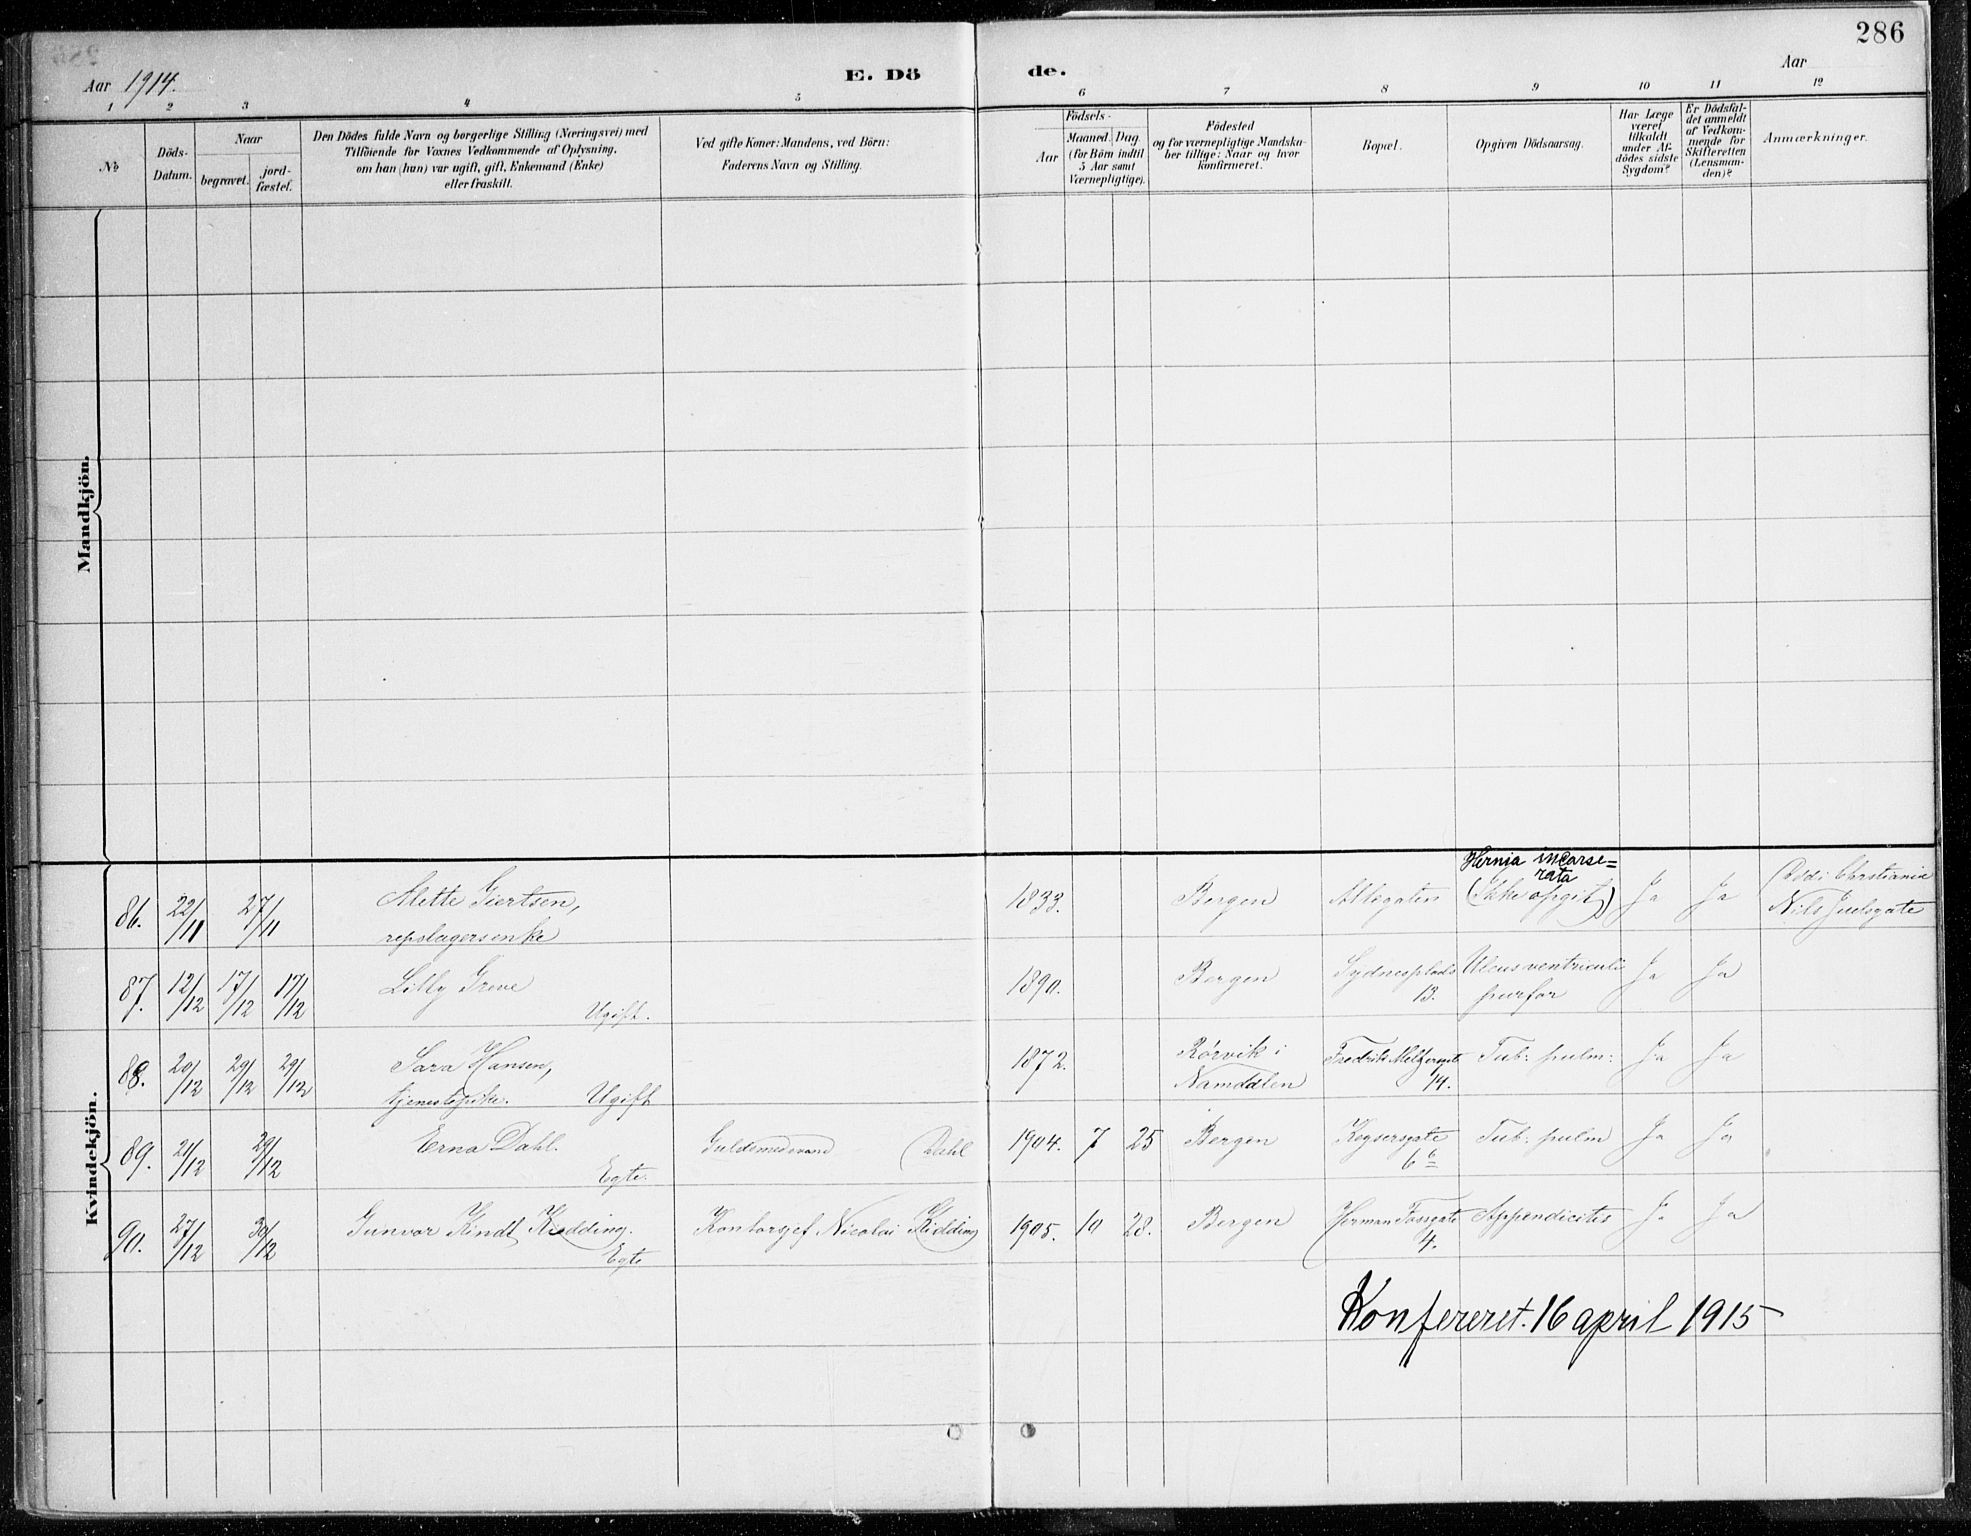 286
Aar 1914.
E. Dö
de.
Aar
1 2 3 4 5 6 7 8 9 10 11 12
№
Döds-
Datum.
Naar
begravet.
jord-
fæstet.
Den Dödes fulde Navn og borgerlige Stilling (Næringsvei) med
Tilföiende for Voxnes Vedkommende af Oplysning,
om han (hun) var ugift, gift, Enkemand (Enke)
eller fraskilt.
Ved gifte Koner: Mandens, ved Börn:
Faderens Navn og Stilling.
Födsels-
Aar
Maaned. Dag.
(for Börn indtil
5 Aar samt
Værnepligtige).
Födested
og for værnepligtige Mandska-
ber tillige: Naar og hvor
konfirmeret.
Bopæl.
Opgiven Dödsaarsag.
Har Læge
været
tilkaldt
under Af-
dödes sidste
Sygdom?
Er Dödsfal-
det anmeldt
af Vedkom-
mende for
Skifteretten
(Lensman-
den)?
Anmærkninger.
Mandkjön.
Kvindekjön.
86. 22/11 27/11 Mette Giertsen, 1833. Bergen Allégaten Hernia incarse=
rata
(Ikke opgit) Ja Ja Død i Christiania
repslagersenke Nils Juelsgate
87. 12/12 17/12 17/12 Lilly Greve 1890. Bergen Sydnesplads Ulcus ventriculi Ja Ja
Ugift. 13. perfor
88. 20/12 29/12 29/12 Sara Hansen, 1872. Rörvik i Fredrik Meltzersgate Tub: pulm: Ja Ja
tjenestepike. Ugift Namdalen 14.
89. 24/12 29/12 Erna Dahl. Guldsmedsvend Dahl 1904. 7 25 Bergen Keysersgate Tub: pulm Ja Ja
Egte. 6
90. 27/12 30/12 Gunvor Kindt Kødding. Kontorsjef Nicolai Kidding 1905. 10 28. Bergen Herman Fossgate Appendicites Ja Ja
Egte 4.
Konfereret. 16 april 1915